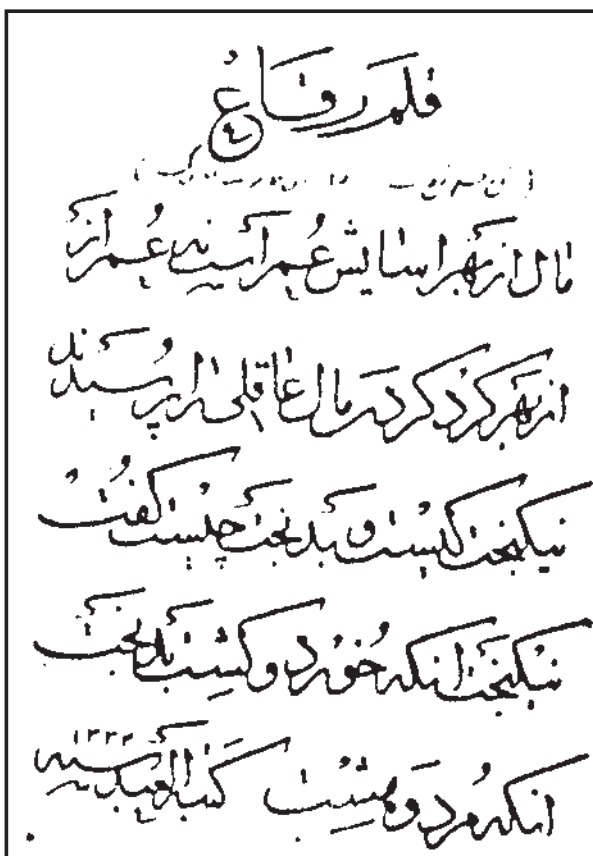 قلم رقاع
مال از بهر اسایش عمر است نه عمر از
از بهر کرد کردن مال عاقلی را پرسیدند
نیکبخت کیست و بدبخت چیست کفت
نیکبخت انکه خورد و کشت بدبخت
انکه مرد و هشت کتبه العبد